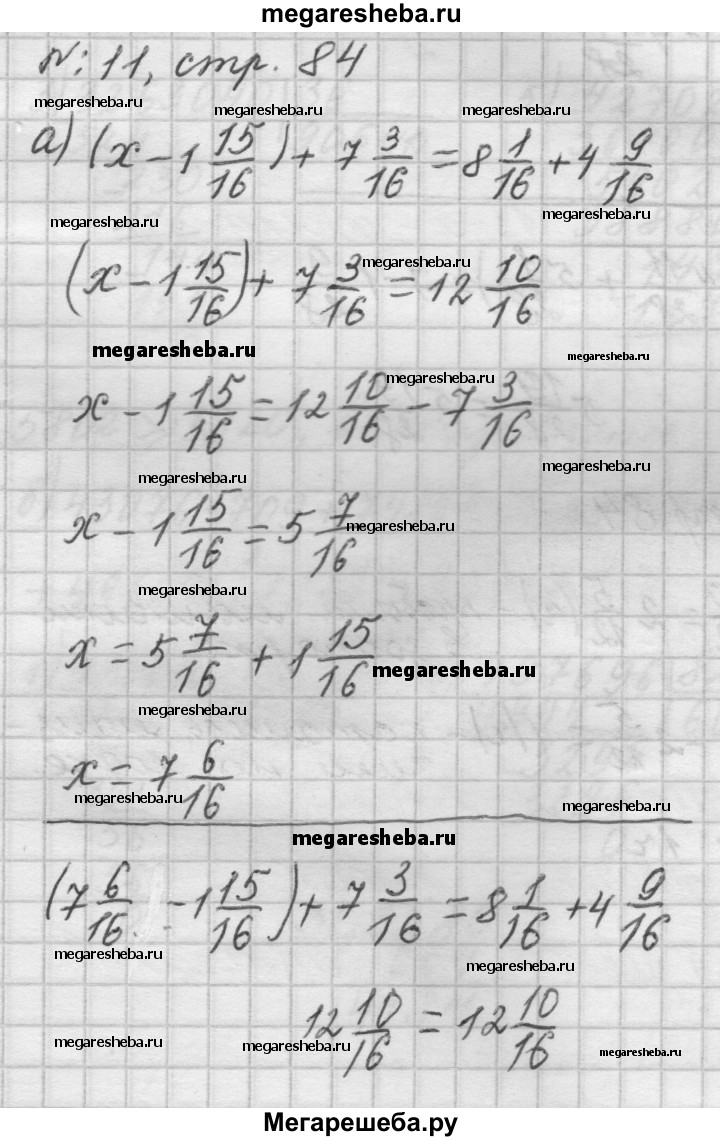 megaresheba.ru
N: 11, стр. 84
megaresheba.ru megaresheba.ru megaresheba.ru
а) (x - 1 15/16) + 7 3/16 = 8 1/16 + 4 9/16
megaresheba.ru megaresheba.ru
megaresheba.ru
(x - 1 15/16) + 7 3/16 = 12 10/16
megaresheba.ru megaresheba.ru
megaresheba.ru
x - 1 15/16 = 12 10/16 - 7 3/16
megaresheba.ru megaresheba.ru
x - 1 15/16 = 5 7/16
megaresheba.ru
megaresheba.ru
x = 5 7/16 + 1 15/16
megaresheba.ru
megaresheba.ru
x = 7 6/16
megaresheba.ru megaresheba.ru
megaresheba.ru
(7 6/16 - 1 15/16) + 7 3/16 = 8 1/16 + 4 9/16
megaresheba.ru megaresheba.ru
12 10/16 = 12 10/16
megaresheba.ru megaresheba.ru megaresheba.ru
Мегарешеба.ру